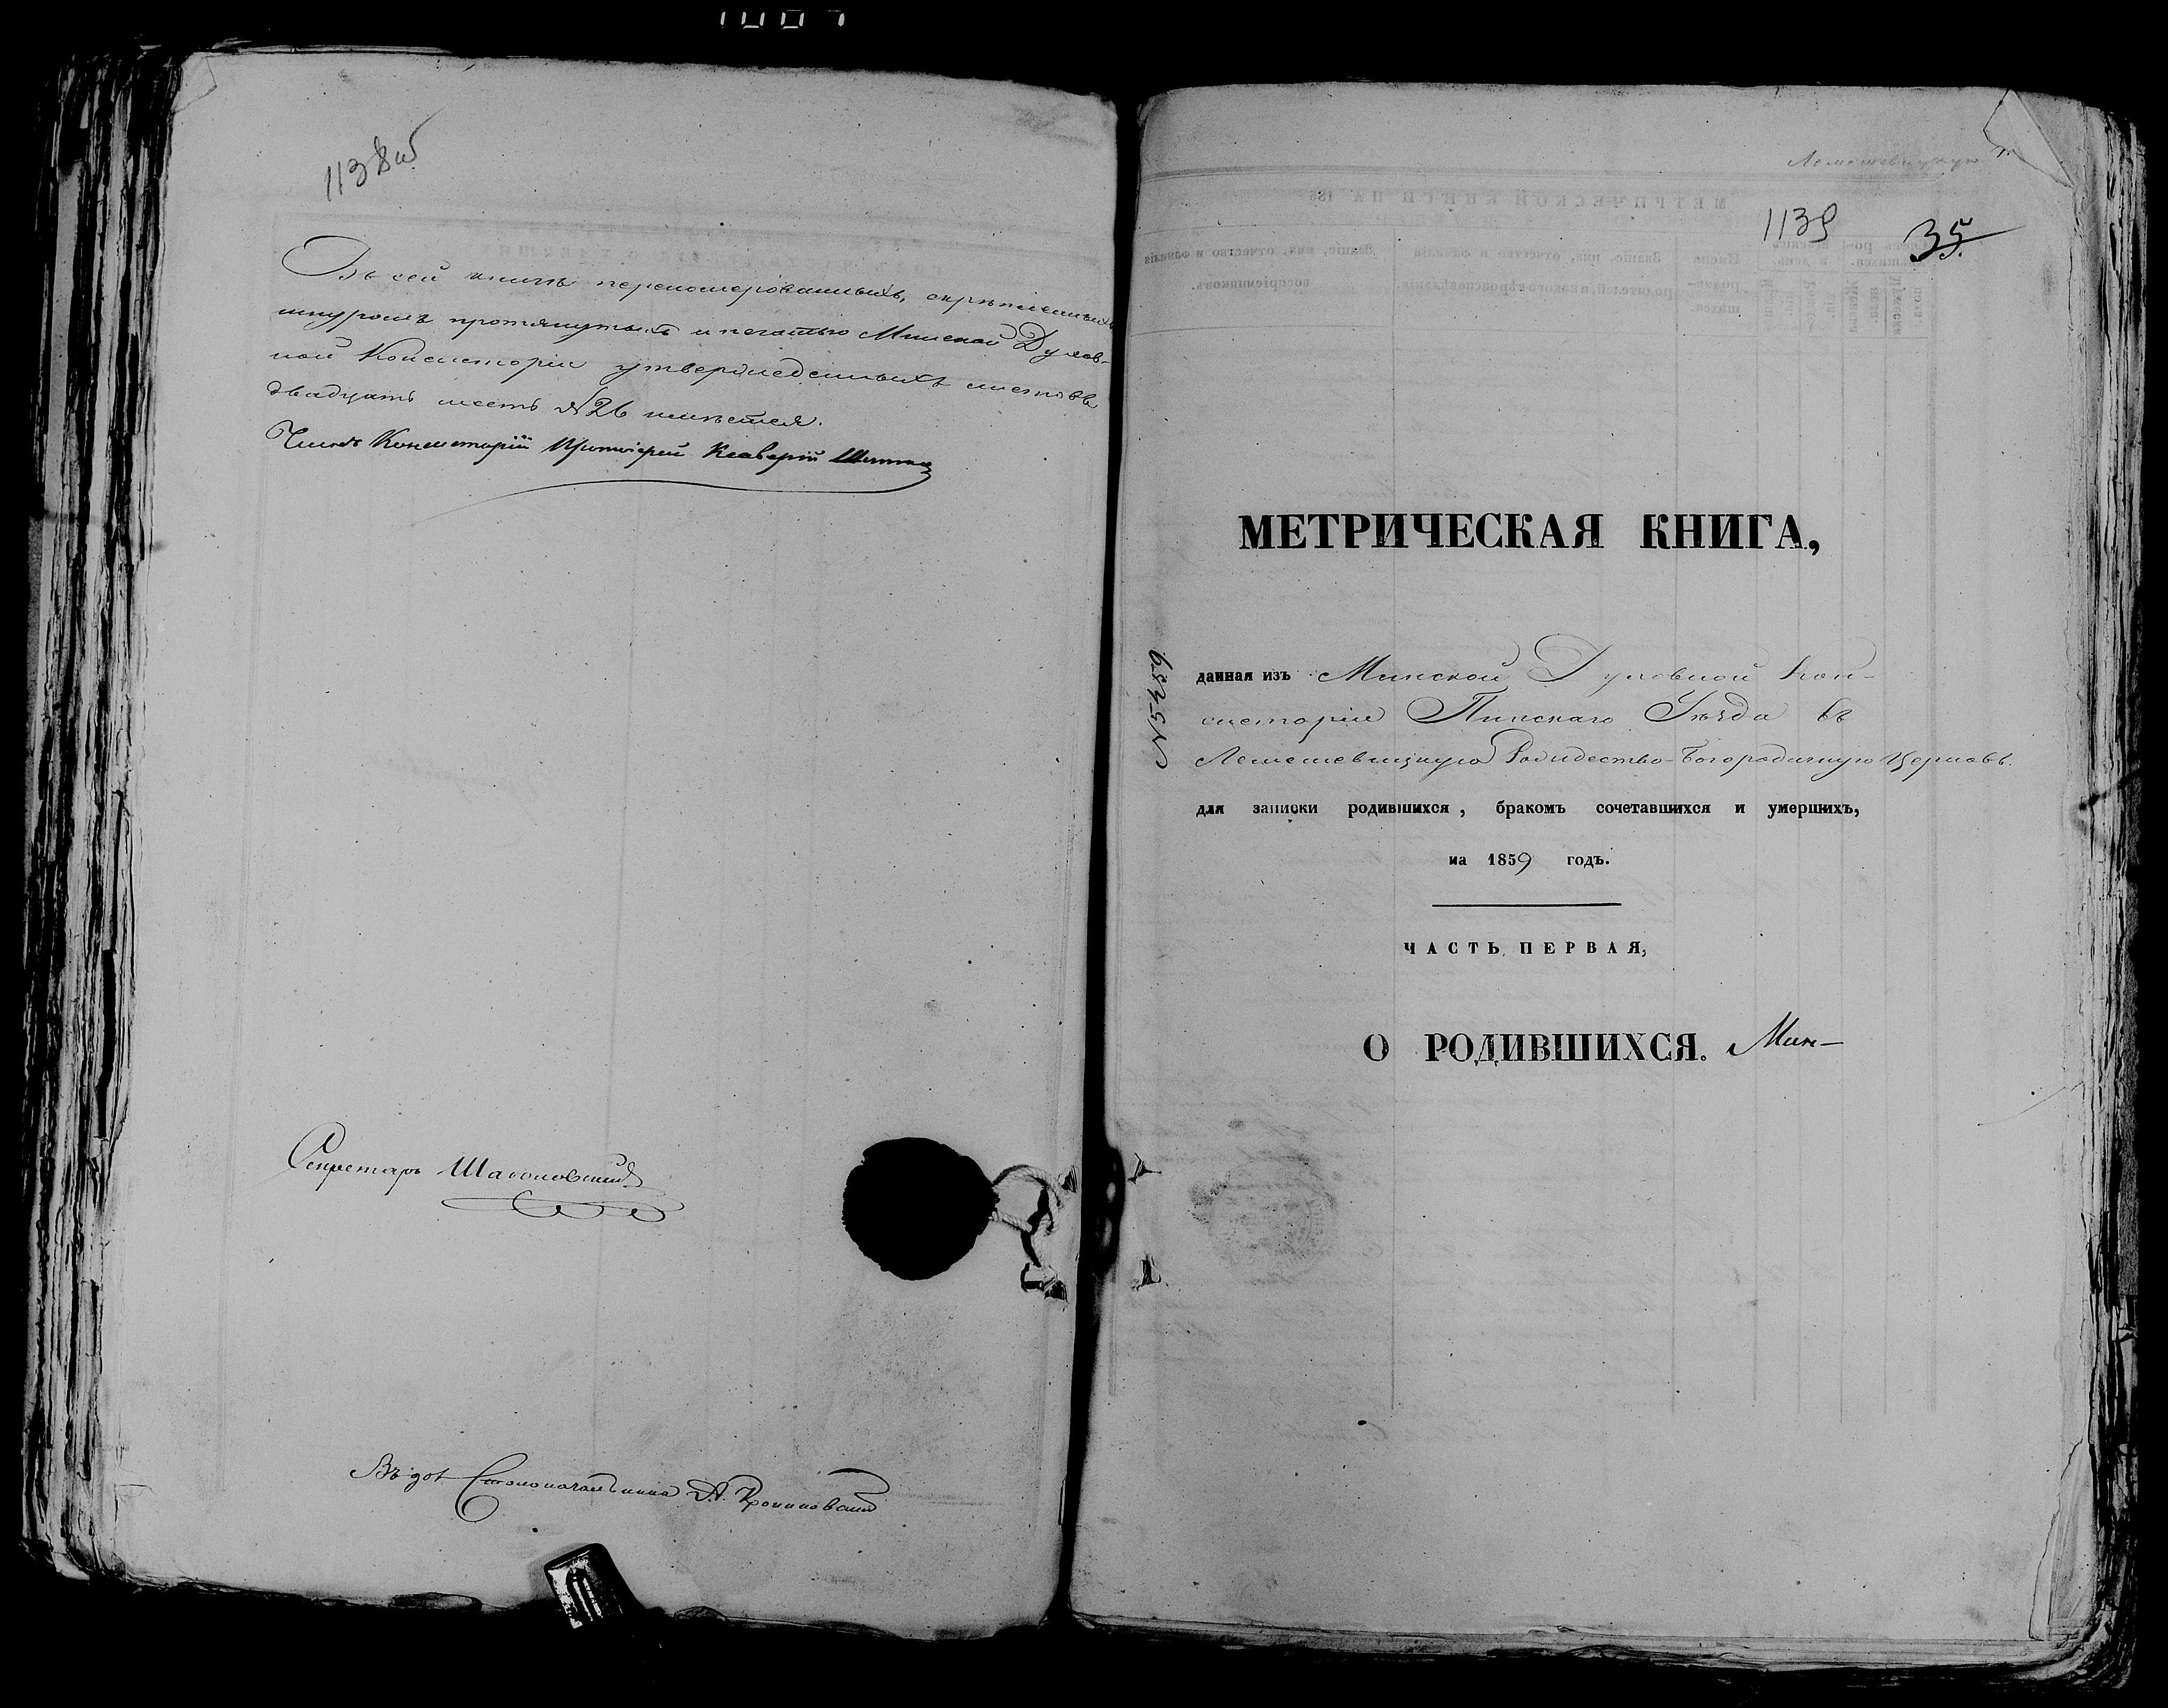 1138 об
Въ сей книгѣ перенумерованныхъ, скрѣпленныхъ
шнуромъ протянутыхъ и печатью Минской Духов-
ной Консисторіи утвержденныхъ листовъ
двадцать шесть № 26 имѣется.
Членъ Консисторіи Протоіерей Ксаверій
Секретарь
Столоначальника А.
Лемешевицкую
1139
35.
МЕТРИЧЕСКАЯ КНИГА,
данная изъ Минской Духовной Кон-
систоріи Пинскаго Уѣзда въ
Лемешевицкую Рождество-Богородичную Церковь
для записки родившихся, бракомъ сочетавшихся и умершихъ,
на 1859 годъ.
ЧАСТЬ ПЕРВАЯ,
О РОДИВШИХСЯ. Мин-